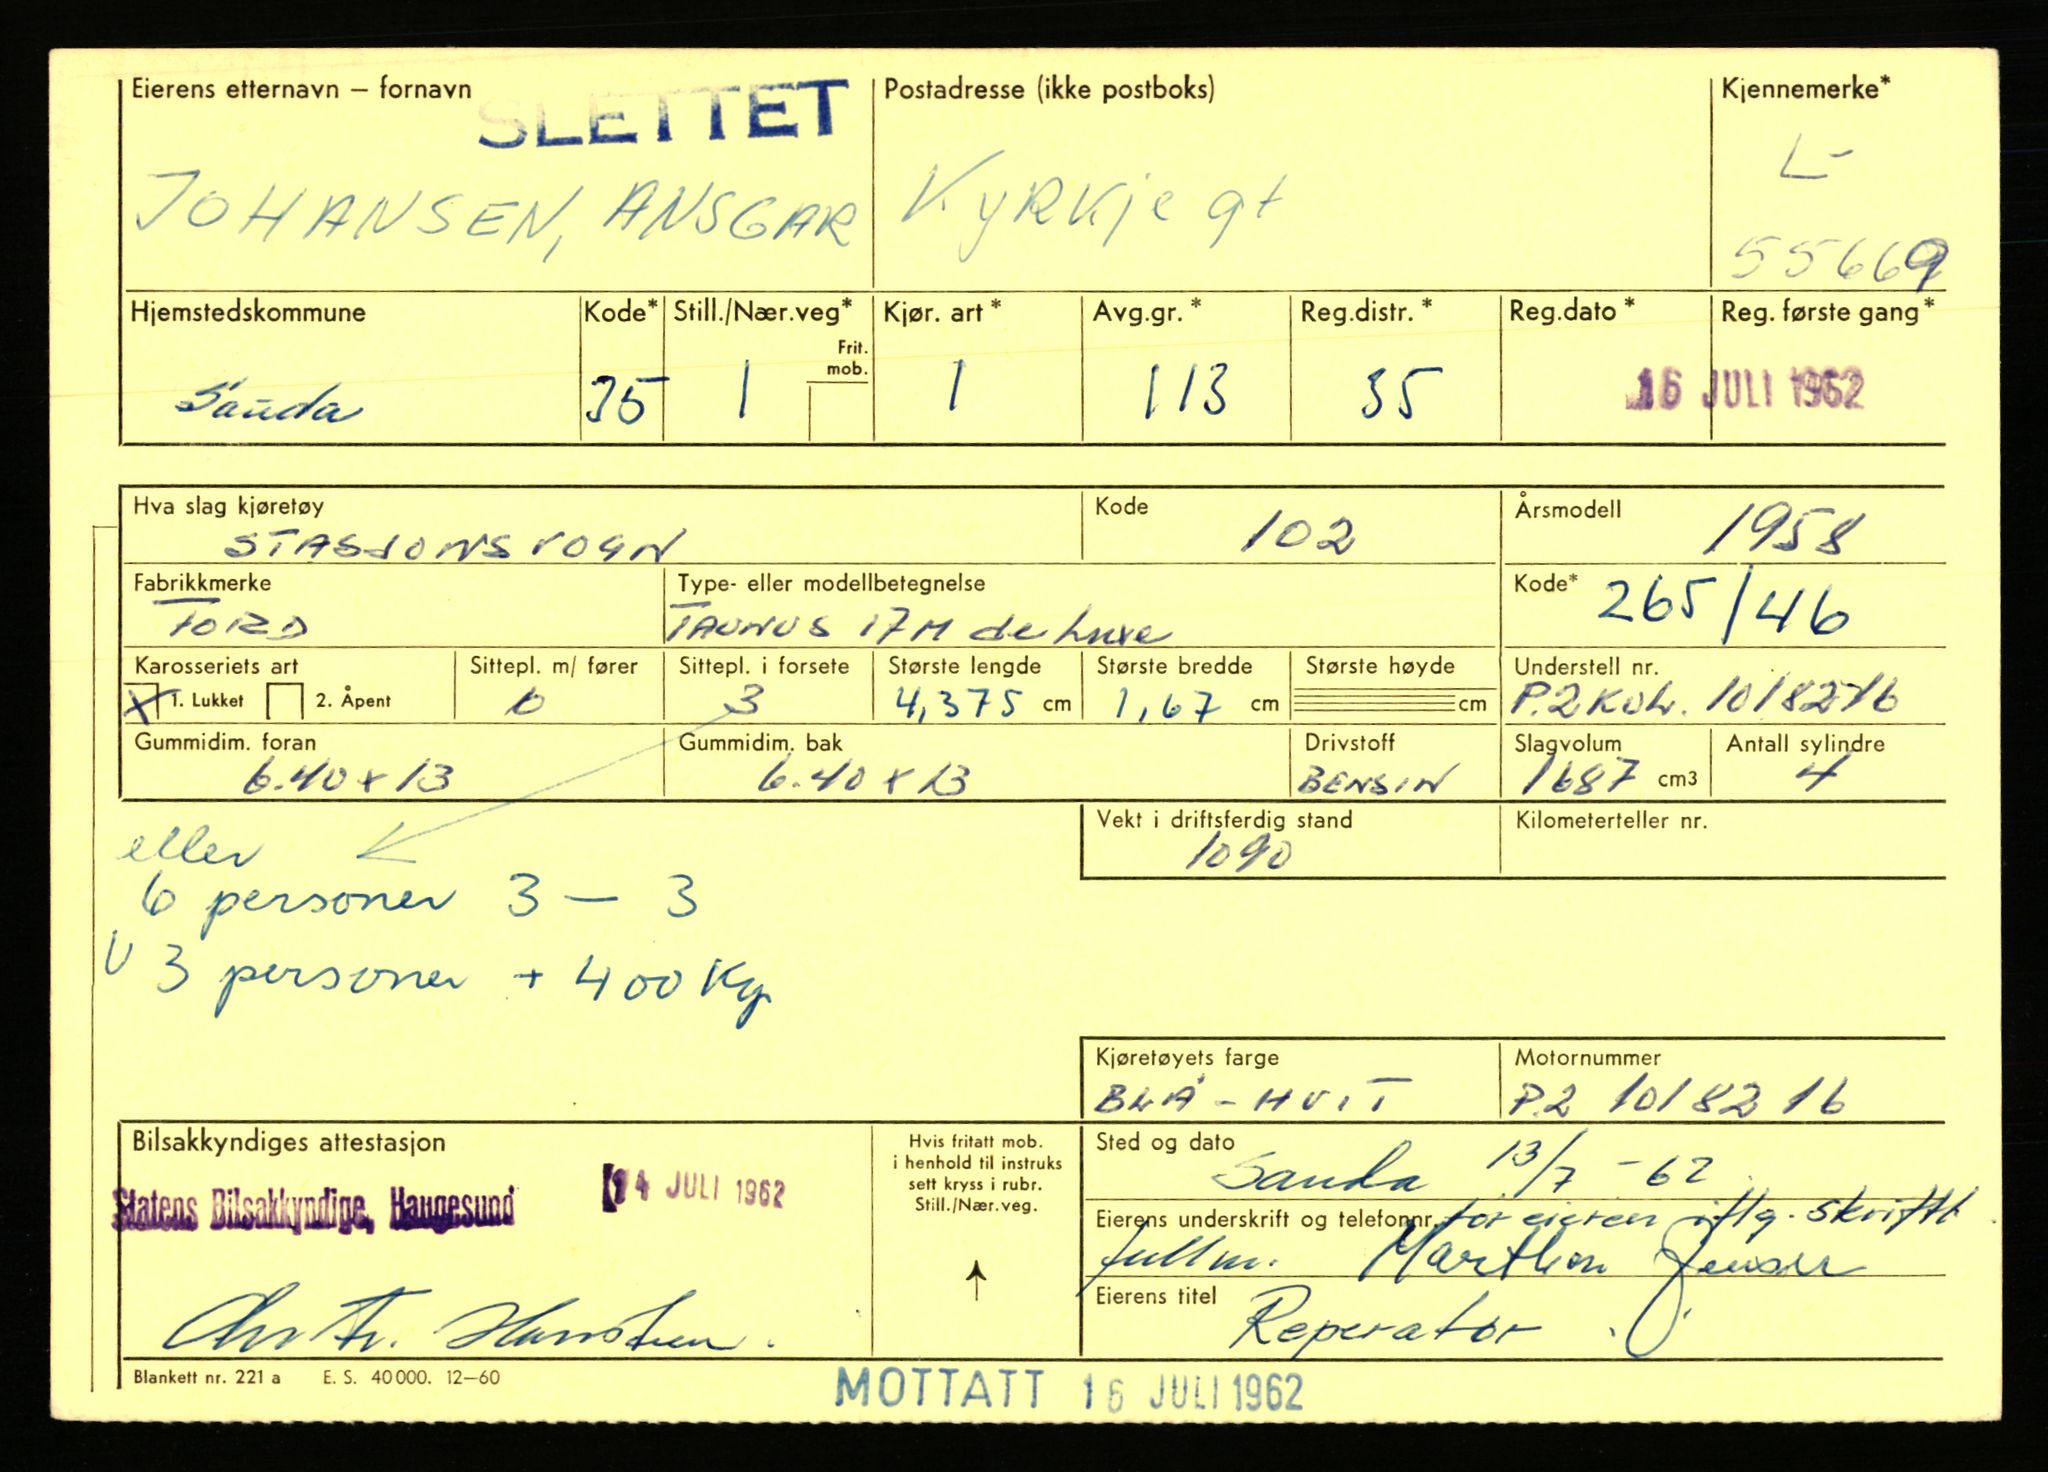 Eierens etternavn – fornavn
SLETTET
Postadresse (ikke postboks)
Kjennemerke*
JOHANSEN, ANSGAR
KyRKje gt
L-
55669
Hjemstedskommune
Kode*
Still./Nær.veg*
Frit. mob.
Kjør. art*
Avg.gr.*
Reg.distr.*
Reg.dato*
Reg. første gang*
Sauda
35
1
1
113
35
16 JULI 1962
Hva slag kjøretøy
STASJONSVOGN
Kode
102
Årsmodell
1958
Fabrikkmerke
FORD
Type- eller modellbetegnelse
TAUNUS 17M de Luxe
Kode*
265/46
Karosseriets art
X 1. Lukket
2. Åpent
Sittepl. m/ fører
6
Sittepl. i forsete
3
Største lengde
4,375 cm
Største bredde
1,67 cm
Største høyde
cm
Understell nr.
P.2 KOL. 1018216
Gummidim. foran
6.40 x 13
Gummidim. bak
6.40 x 13
Drivstoff
BENSIN
Slagvolum
1687 cm3
Antall sylindre
4
Vekt i driftsferdig stand
1090
Kilometerteller nr.
eller
6 personer 3 – 3
V 3 personer + 400 Kg
Kjøretøyets farge
BLÅ – HVIT
Motornummer
P.2 1018216
Bilsakkyndiges attestasjon
14 JULI 1962
Statens Bilsakkyndige, Haugesund
Hvis fritatt mob.
i henhold til instruks
sett kryss i rubr.
Still./Nær.veg.
Sted og dato
Sauda 13/7 - 62
Eierens underskrift og telefonnr.
for eieren iflg. skriftl.
fullm. Marthon Jensen
Eierens titel
Reperatør
Blankett nr. 221 a E. S. 40 000. 12–60
MOTTATT 16 JULI 1962